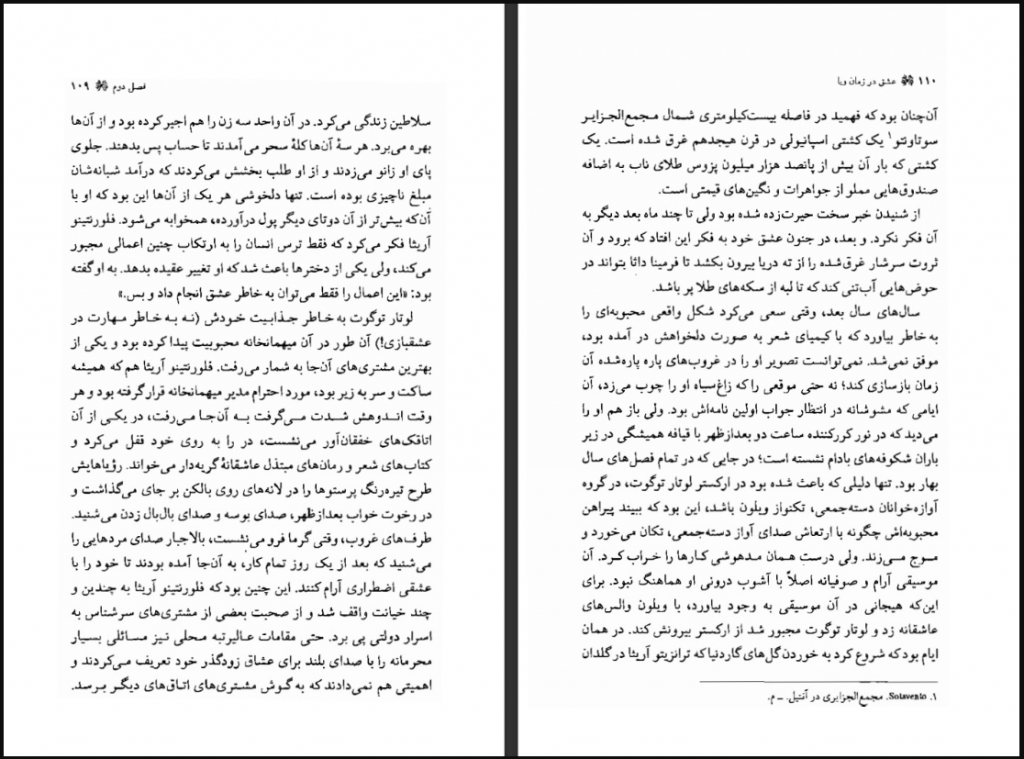 فصل دوم ۱۰۹
سلاطین زندگی می‌کرد. در آن واحد سه زن را هم اجیر کرده بود و از آن‌ها
بهره می‌برد. هر سهٔ آن‌ها کلهٔ سحر می‌آمدند تا حساب پس بدهند. جلوی
پای او زانو می‌زدند و از او طلب بخشش می‌کردند که درآمد شبانه‌شان
مبلغ ناچیزی بوده است. تنها دلخوشی هر یک از آن‌ها این بود که او با
آن‌که بیش‌تر از آن دوتای دیگر پول درآورده، همخوابه می‌شود. فلورنتینو
آریثا فکر می‌کرد که فقط ترس انسان را به ارتکاب چنین اعمالی مجبور
می‌کند، ولی یکی از دخترها باعث شد که او تغییر عقیده بدهد. به او گفته
بود: «این اعمال را فقط می‌توان به خاطر عشق انجام داد و بس.»
لوتار توگوت به خاطر جذابیت خودش (نه به خاطر مهارت در
عشقبازی!) آن طور در آن میهمانخانه محبوبیت پیدا کرده بود و یکی از
بهترین مشتری‌های آن‌جا به شمار می‌رفت. فلورنتینو آریثا هم که همیشه
ساکت و سر به زیر بود، مورد احترام مدیر میهمانخانه قرار گرفته بود و هر
وقت اندوهش شدت می‌گرفت به آن‌جا می‌رفت، در یکی از آن
اتاقک‌های خفقان‌آور می‌نشست، در را به روی خود قفل می‌کرد و
کتاب‌های شعر و رمان‌های مبتذل عاشقانهٔ گریه‌دار می‌خواند. رؤیاهایش
طرح تیره‌رنگ پرستوها را در لانه‌های روی بالکن بر جای می‌گذاشت و
در رخوت خواب بعدازظهر، صدای بوسه و صدای بال‌بال زدن می‌شنید.
طرف‌های غروب، وقتی گرما فرو می‌نشست، بالاجبار صدای مردهایی را
می‌شنید که بعد از یک روز تمام کار، به آن‌جا آمده بودند تا خود را با
عشقی اضطراری آرام کنند. این چنین بود که فلورنتینو آریثا به چندین و
چند خیانت واقف شد و از صحبت بعضی از مشتری‌های سرشناس به
اسرار دولتی پی برد. حتی مقامات عالیرتبه محلی نیز مسائلی بسیار
محرمانه را با صدای بلند برای عشاق زودگذر خود تعریف می‌کردند و
اهمیتی هم نمی‌دادند که به گوش مشتری‌های اتاق‌های دیگر برسد.
۱۱۰ عشق در زمان وبا
آن‌چنان بود که فهمید در فاصله بیست‌کیلومتری شمال مجمع‌الجزایر
سوتاونتو۱ یک کشتی اسپانیولی در قرن هیجدهم غرق شده است. یک
کشتی که بار آن بیش از پانصد هزار میلیون پزوس طلای ناب به اضافه
صندوق‌هایی مملو از جواهرات و نگین‌های قیمتی است.
از شنیدن خبر سخت حیرت‌زده شده بود ولی تا چند ماه بعد دیگر به
آن فکر نکرد. و بعد، در جنون عشق خود به فکر این افتاد که برود و آن
ثروت سرشار غرق‌شده را از ته دریا بیرون بکشد تا فرمینا داثا بتواند در
حوض‌هایی آب‌تنی کند که تا لبه از سکه‌های طلا پر باشد.
سال‌های سال بعد، وقتی سعی می‌کرد شکل واقعی محبوبه‌ای را
به خاطر بیاورد که با کیمیای شعر به صورت دلخواهش در آمده بود،
موفق نمی‌شد. نمی‌توانست تصویر او را در غروب‌های پاره پاره‌شده آن
زمان بازسازی کند؛ نه حتی موقعی را که زاغ‌سیاه او را چوب می‌زد، آن
ایامی که مشوشانه در انتظار جواب اولین نامه‌اش بود. ولی باز هم او را
می‌دید که در نور کورکننده ساعت دو بعدازظهر با قیافه همیشگی در زیر
باران شکوفه‌های بادام نشسته است؛ در جایی که در تمام فصل‌های سال
بهار بود. تنها دلیلی که باعث شده بود در ارکستر لوتار توگوت، در گروه
آوازه‌خوانان دسته‌جمعی، تکنواز ویلون باشد، این بود که ببیند پیراهن
محبوبه‌اش چگونه با ارتعاش صدای آواز دسته‌جمعی، تکان می‌خورد و
موج می‌زند. ولی درست همان مدهوشی کارها را خراب کرد. آن
موسیقی آرام و صوفیانه اصلاً با آشوب درونی او هماهنگ نبود. برای
این‌که هیجانی در آن موسیقی به وجود بیاورد، با ویلون والس‌های
عاشقانه زد و لوتار توگوت مجبور شد از ارکستر بیرونش کند. در همان
ایام بود که شروع کرد به خوردن گل‌های گاردنیا که ترانزیتو آریثا در گلدان
۱. Sotavento. مجمع‌الجزایری در آنتیل. ــ م.